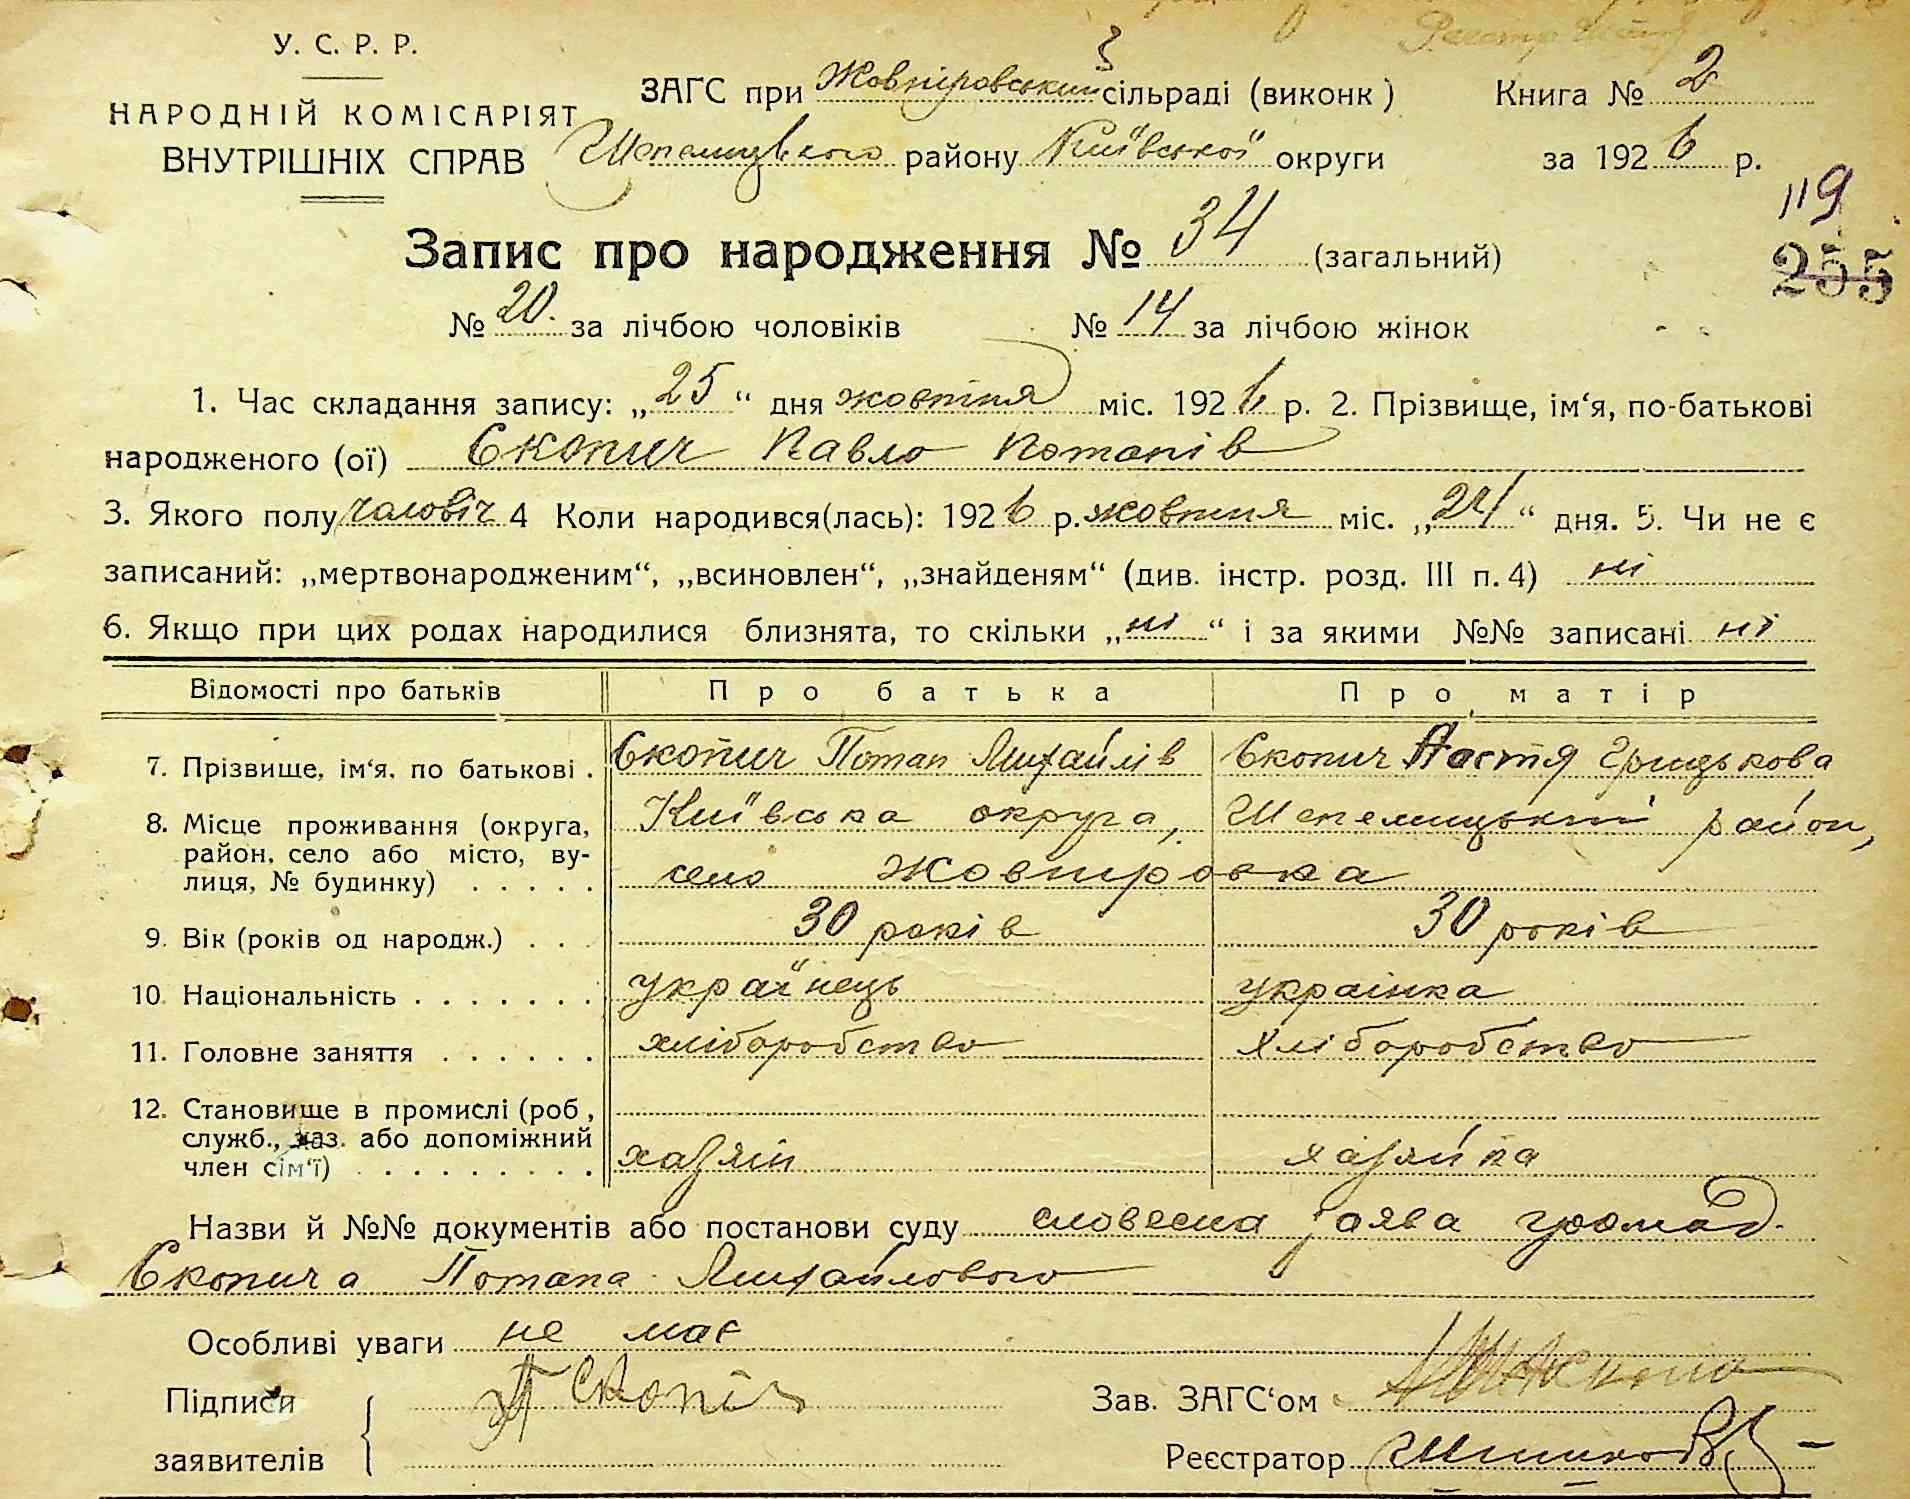 У. С. Р. Р.
НАРОДНІЙ КОМІСАРІЯТ
ВНУТРІШНІХ СПРАВ
ЗАГС при Жовніровський сільраді (виконк)
Шепелицького району Київської округи
Книга № 2
за 1926 р.
119
255
Запис про народження № 34 (загальний)
№ 20. за лічбою чоловіків № 14 за лічбою жінок
1. Час складання запису: „25“ дня жовтня міс. 1926 р. 2. Прізвище, ім‘я, по-батькові
народженого (ої) Скопич Павло Потапів
3. Якого полу чоловіч 4 Коли народився(лась): 1926 р. жовтня міс. „24“ дня. 5. Чи не є
записаний: „мертвонародженим“, „всиновлен“, „знайденям“ (див. інстр. розд. III п. 4) ні
6. Якщо при цих родах народилися близнята, то скільки „ні“ і за якими №№ записані ні
Відомості про батьків Про батька Про матір
7. Прізвище, ім‘я, по батькові . Скопич Потап Михайлів Скопич Настя Грицькова
8. Місце проживання (округа, район, село або місто, вулиця, № будинку) . . . . . Київська округа, Шепелицький район,
село Жовніровка
9. Вік (років од народж.) . . . 30 років 30 років
10. Національність . . . . . . . українець українка
11. Головне заняття . . . . . . хліборобство хліборобство
12. Становище в промислі (роб, служб., хаз. або допоміжний член сім‘ї) . . . . . . . . . хазяїн хазяйка
Назви й №№ документів або постанови суду словесна заява громад.
Скопича Потапа Михайлового
Особливі уваги не має
Підписи П Скопич
заявителів
Зав. ЗАГС‘ом
Реєстратор